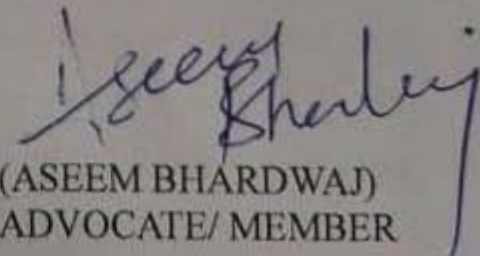 Aseem
Bhardwaj
(ASEEM BHARDWAJ)
ADVOCATE/ MEMBER